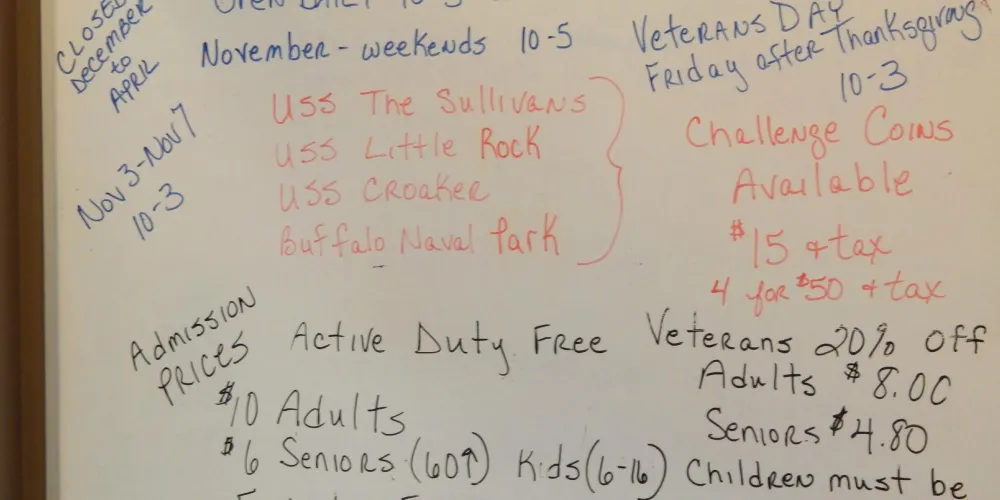 CLOSED
DECEMBER
to
APRIL
November - weekends 10-5
Veterans Day
Friday after Thanksgiving
10-3
Nov 3-Nov 7
10-3
USS The Sullivans
USS Little Rock
USS Croaker
Buffalo Naval Park
Challenge Coins
Available
$15 + tax
4 for $50 + tax
Admission
Prices
Active Duty Free
Veterans 20% off
Adults $8.00
Seniors $4.80
$10 Adults
$6 Seniors (60↑) Kids (6-16) Children must be